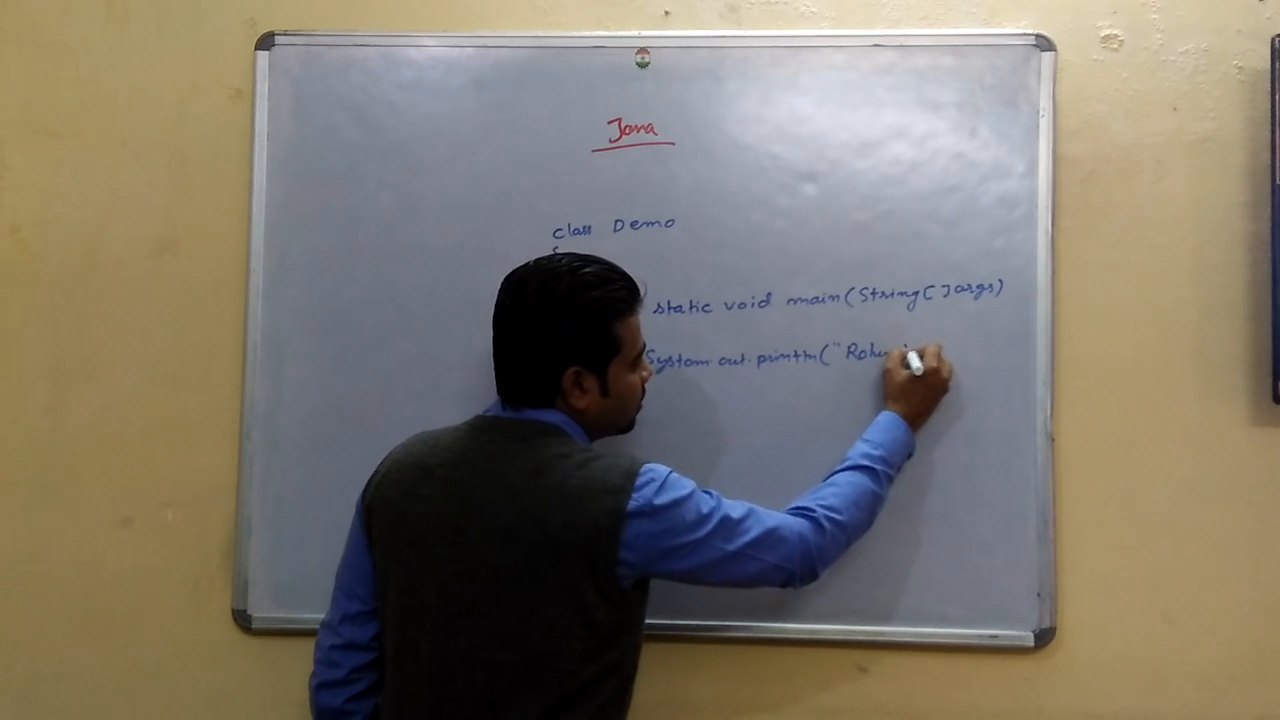 Java
class Demo
{
static void main(String[]args)
System.out.println("